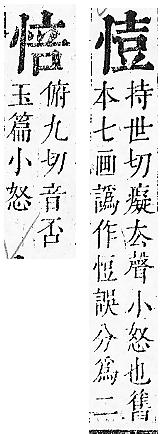 持世切癡去聲小怒也舊
本七画譌作誤分爲二
俯九切音否
玉篇小怒